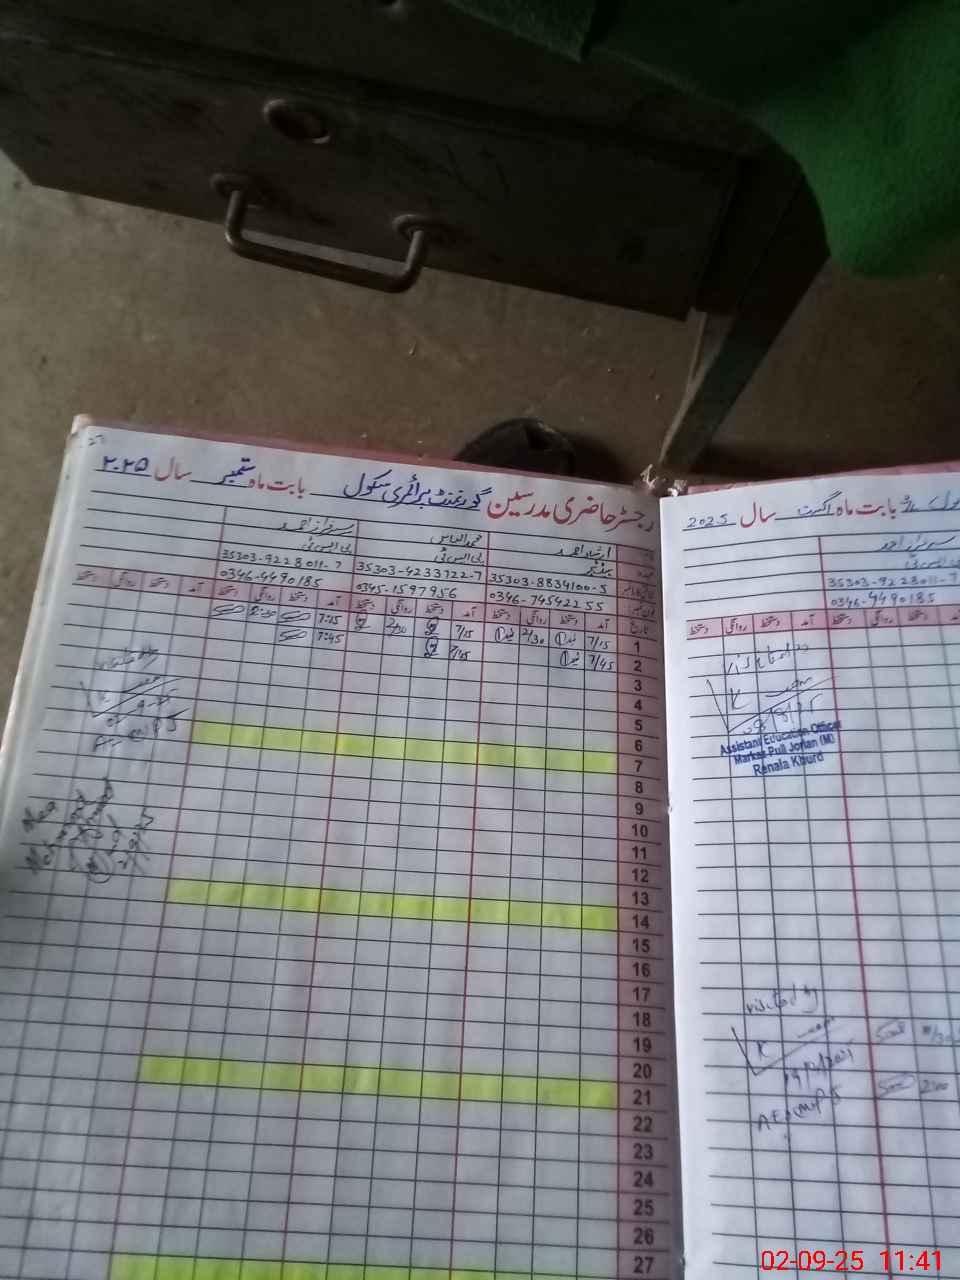 رجسٹر حاضری مدرسین گورنمنٹ پرائمری سکول بابت ماہ ستمبر سال ۲۰۲۵
ارشاد احمد محمد الیاس سرفراز احمد
پی ایس ٹی پی ایس ٹی
35303-8834100-5 35303-4233722-7 35303-9228011-7
0346-7454255 0345-1597956 0346-4490185
تاریخ آمد دستخط روانگی دستخط آمد دستخط روانگی دستخط آمد دستخط روانگی دستخط آمد دستخط روانگی دستخط
1 7/15 2/30 7/15 2/30 7:15 2:30
2 7/45 7/45 7:45
3
4
5
6
7
8
9
10
11
12
13
14
15
16
17
18
19
20
21
22
23
24
25
26
27
visited by
بابت ماہ اگست سال 2025
سرفراز احمد
پی ایس ٹی
35303-9228011-7
0346-4490185
آمد دستخط روانگی دستخط آمد دستخط روانگی دستخط
visited by
Assistant Education Officer
Markaz Pull Jorian (M)
Renala Khurd
visited by
02-09-25 11:41